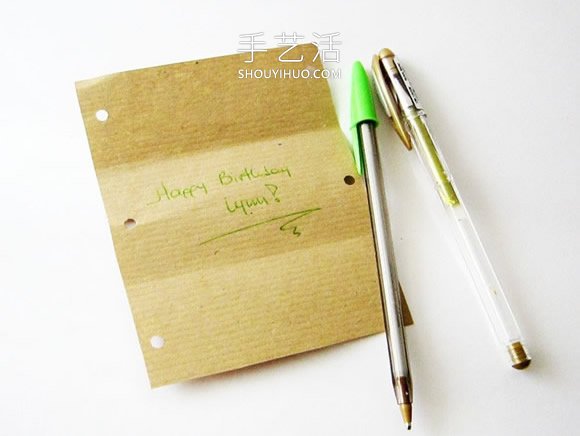 手艺活
SHOUYIHUO.COM
Happy Birthday
Lynn!